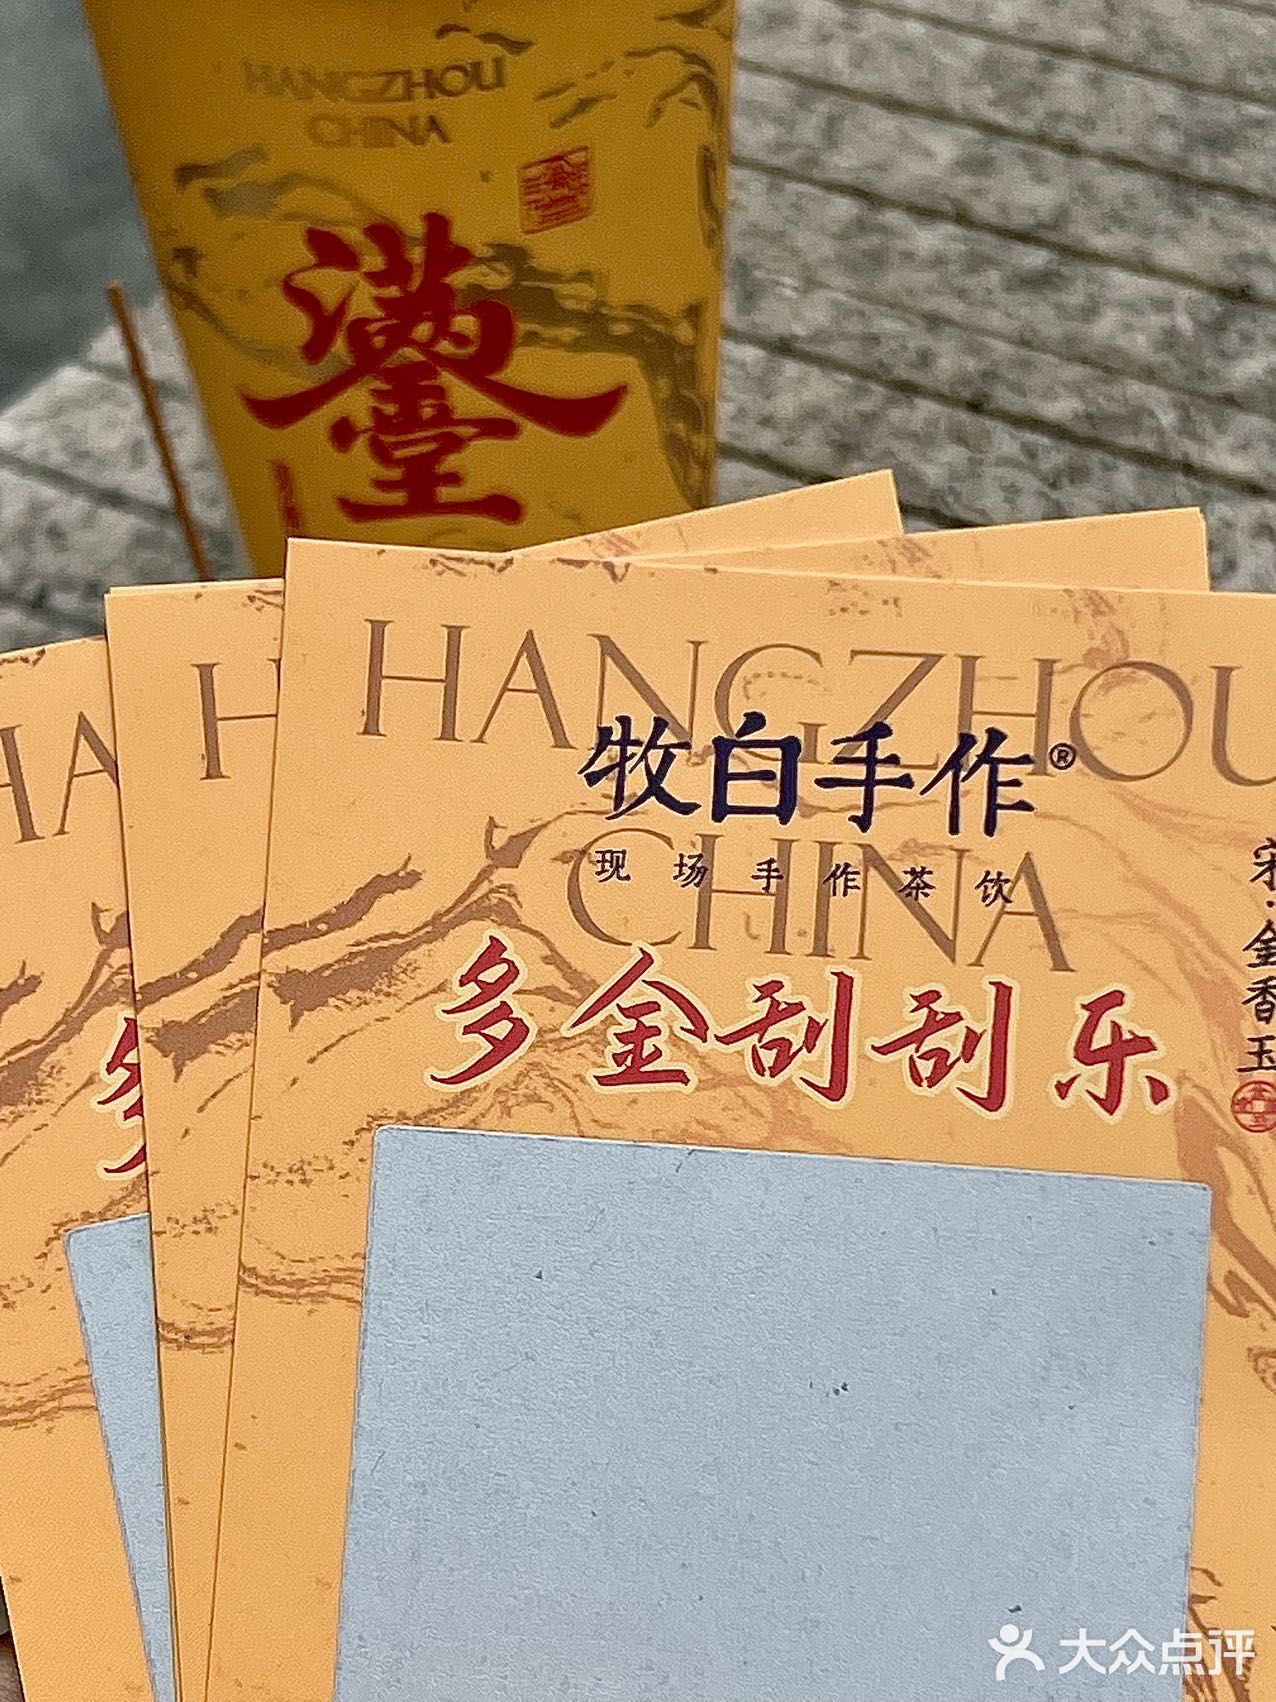 HANGZHOU
CHINA
满堂
HA
H
HANGZHOU
牧白手作®
CHINA
现场手作茶饮
多金刮刮乐
宋·金香玉
大众点评